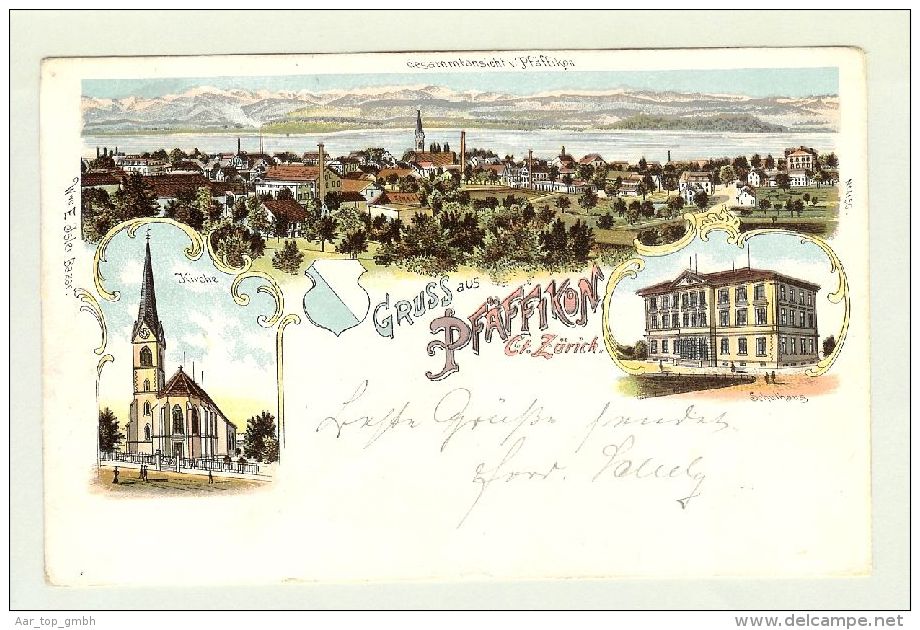 Gesammtansicht v. Pfäffikon
Kirche
GRUSS aus
PFÄFFIKON
Ct. Zürich.
Schulhaus
Beste Grüße sendet
Aar_top_gmbh
www.delcampe.net